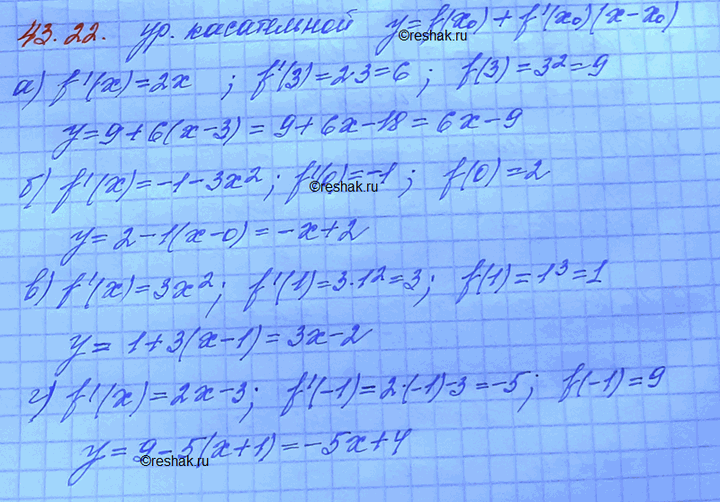 43.22. ур. касательной y=f(x₀)+f'(x₀)(x-x₀)
©reshak.ru
а) f'(x)=2x ; f'(3)=2·3=6 ; f(3)=3²=9
y=9+6(x-3)=9+6x-18=6x-9
б) f'(x)=-1-3x²; f'(0)=-1 ; f(0)=2
©reshak.ru
y=2-1(x-0)=-x+2
в) f'(x)=3x²; f'(1)=3·1²=3; f(1)=1³=1
y=1+3(x-1)=3x-2
г) f'(x)=2x-3; f'(-1)=2·(-1)-3=-5; f(-1)=9
y=9-5(x+1)=-5x+4
©reshak.ru